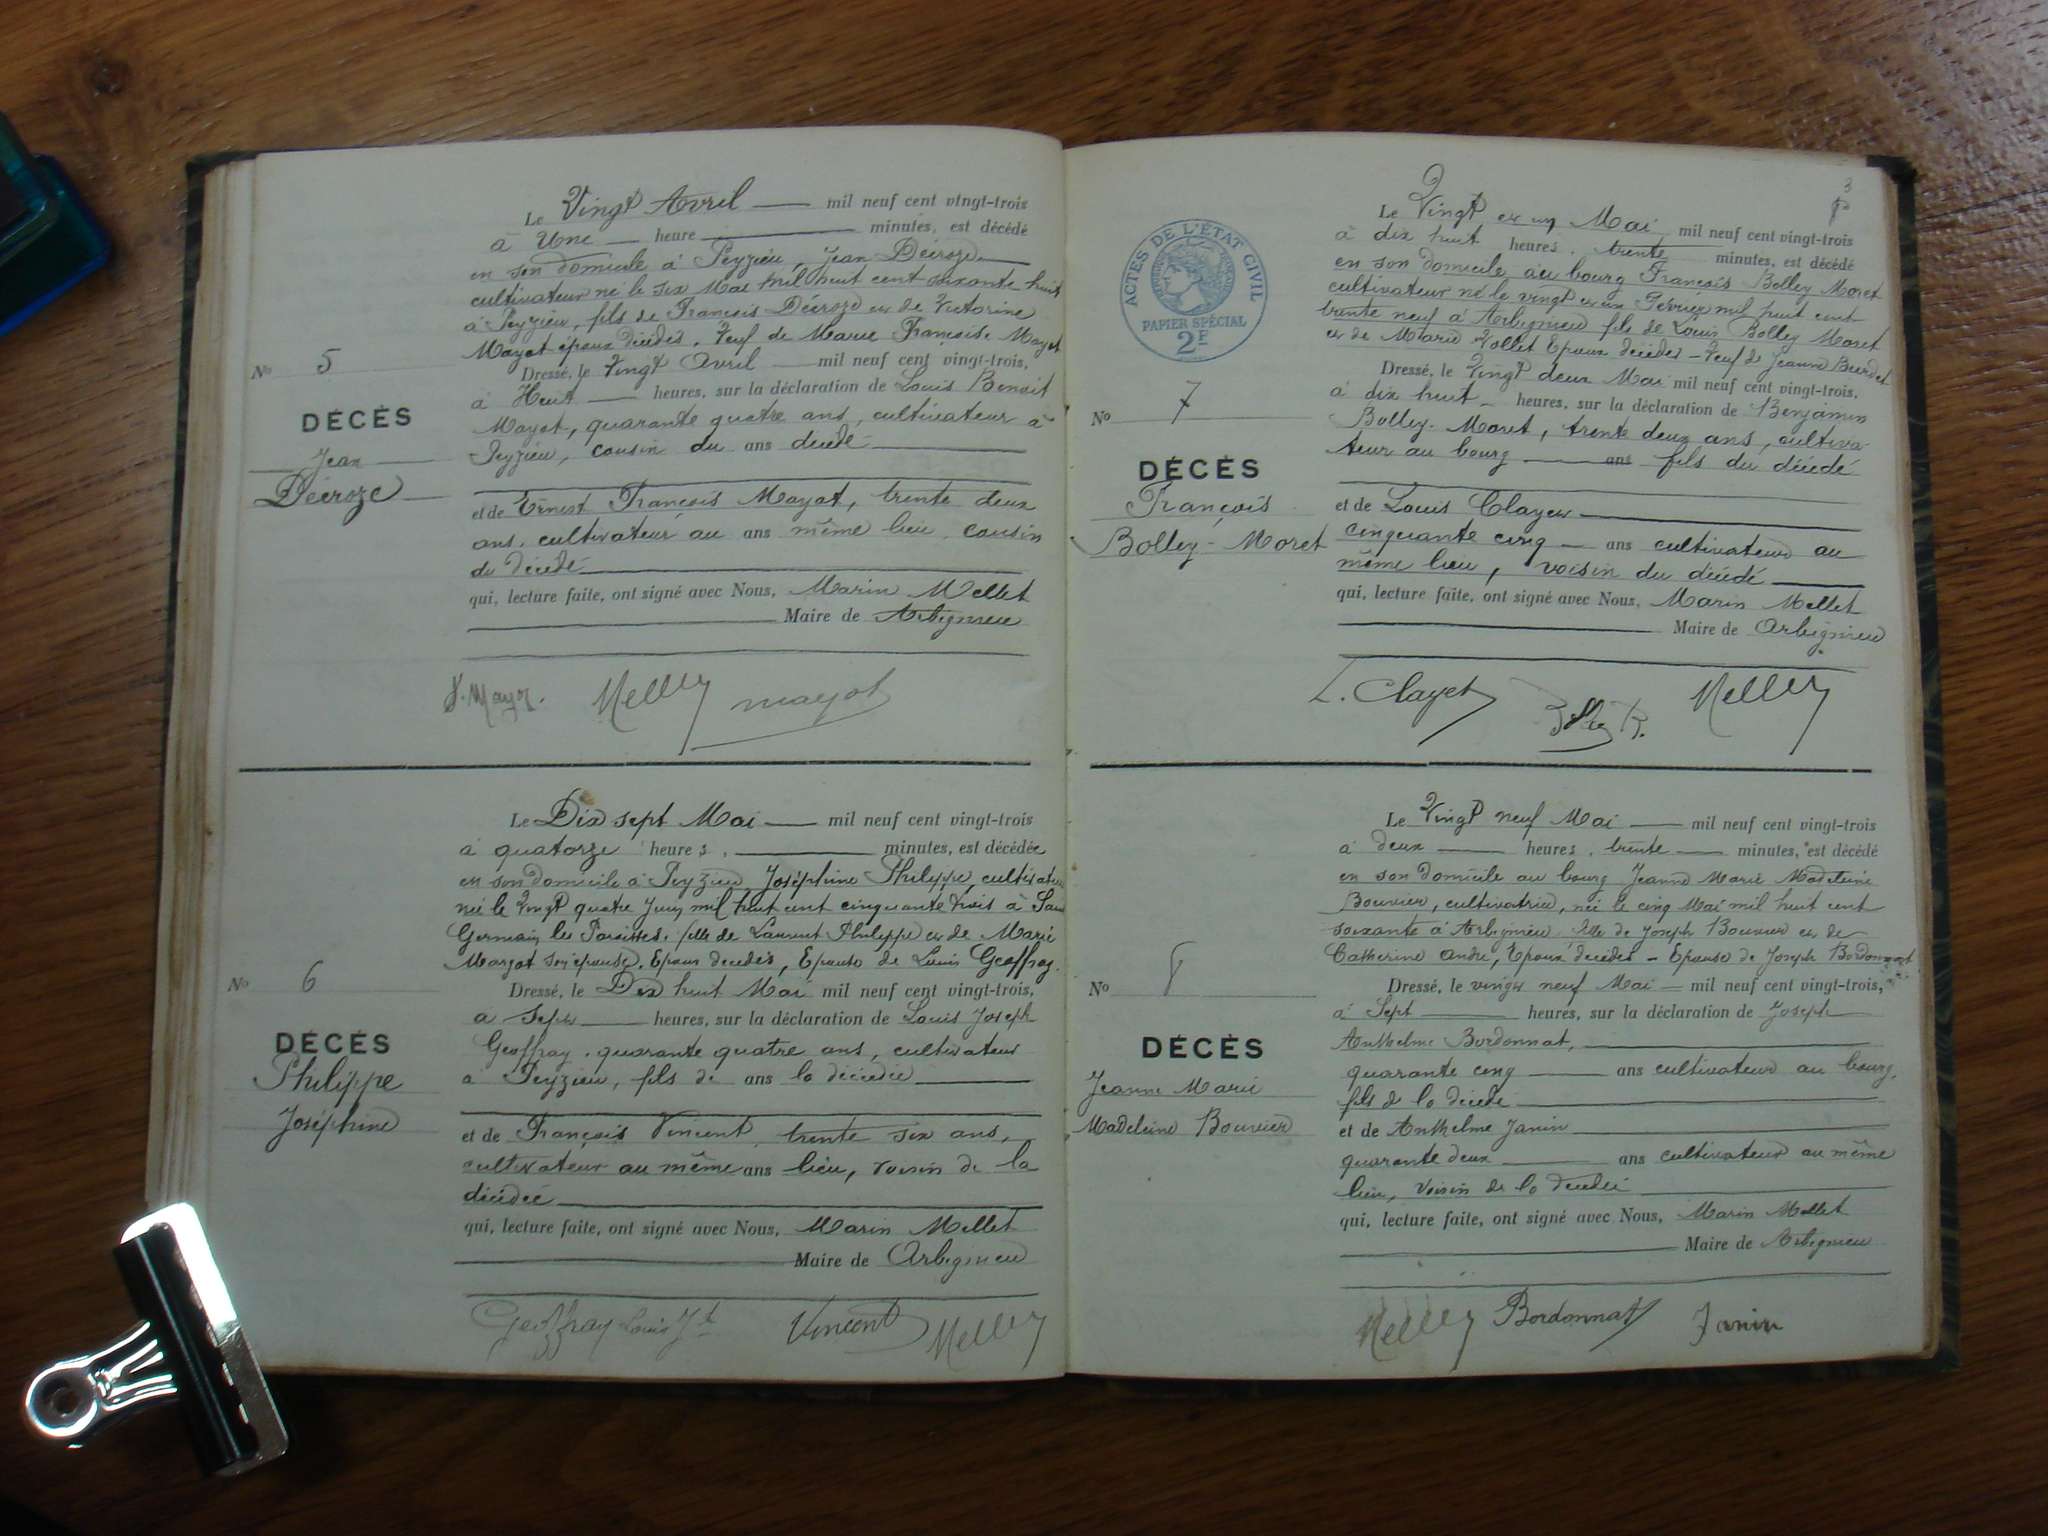 Le Vingt Avril mil neuf cent vingt-trois
à Une heure minutes, est décédé
en son domicile à Peyzieu, Jean Décroze
cultivateur né le six Mai mil huit cent soixante huit
à Peyzieu, fils de François Décroze et de Victorine
Mayot époux décédés. Veuf de Marie Françoise Mayot
No 5
Dressé, le Vingt Avril mil neuf cent vingt-trois,
à Huit heures, sur la déclaration de Louis Benoit
Mayot, quarante quatre ans, cultivateur à
Peyzieu, cousin du ans décédé
DÉCÈS
Jean
Décroze
et de Ernest François Mayot, trente deux
ans, cultivateur au ans même lieu, cousin
du décédé
qui, lecture faite, ont signé avec Nous, Marin Mellet
Maire de Arbignieu
Mellet mayot
Le Dix sept Mai mil neuf cent vingt-trois
à quatorze heures, minutes, est décédée
en son domicile à Peyzieu Joséphine Philippe, cultivatrice
née le Vingt quatre Juin mil huit cent cinquante trois à Saint
Germain les Paroisses, fille de Laurent Philippe et de Marie
Margot son épouse, Epoux décédés, Epouse de Louis Geoffray.
No 6
Dressé, le Dix huit Mai mil neuf cent vingt-trois,
à Sept heures, sur la déclaration de Louis Joseph
Geoffray, quarante quatre ans, cultivateur
à Peyzieu, fils de ans la décédée
DÉCÈS
Philippe
Joséphine
et de François Vincent, trente six ans,
cultivateur au même ans lieu, voisin de la
décédée
qui, lecture faite, ont signé avec Nous, Marin Mellet
Maire de Arbignieu
Geoffray Louis Jh Vincent Mellet
3
ACTES DE L'ÉTAT CIVIL
PAPIER SPÉCIAL
2F
Le Vingt et un Mai mil neuf cent vingt-trois
à dix huit heures, trente minutes, est décédé
en son domicile au bourg François Bolley Moret
cultivateur né le vingt et un Février mil huit cent
trente neuf à Arbignieu fils de Louis Bolley Moret
et de Marie Vollet Epoux décédés - Veuf de Jeanne Burdet
No 7
Dressé, le Vingt deux Mai mil neuf cent vingt-trois,
à dix huit heures, sur la déclaration de Benjamin
Bolley-Moret, trente deux ans, cultiva-
teur au bourg ans fils du décédé
DÉCÈS
François
Bolley-Moret
et de Louis Clayet
cinquante cinq ans cultivateur au
même lieu, voisin du décédé
qui, lecture faite, ont signé avec Nous, Marin Mellet
Maire de Arbignieu
L. Clayet Bolley B. Mellet
Le Vingt neuf Mai mil neuf cent vingt-trois
à deux heures, trente minutes, est décédé
en son domicile au bourg Jeanne Marie Madeleine
Bouvier, cultivatrice, née le cinq Mai mil huit cent
soixante à Arbignieu fille de Joseph Bouvier et de
Catherine André, Epoux décédés - Epouse de Joseph Bordonnat
No 8
Dressé, le vingt neuf Mai mil neuf cent vingt-trois,
à Sept heures, sur la déclaration de Joseph
Anthelme Bordonnat,
quarante cinq ans cultivateur au bourg,
fils de la décédé
DÉCÈS
Jeanne Marie
Madeleine Bouvier
et de Anthelme Janin
quarante deux ans cultivateur au même
lieu, voisin de la décédée
qui, lecture faite, ont signé avec Nous, Marin Mellet
Maire de Arbignieu
Mellet Bordonnat Janin